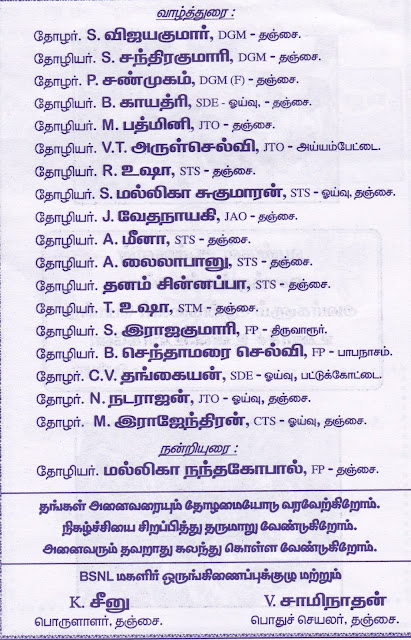 வாழ்த்துரை :
தோழர். S. விஜயகுமார், DGM - தஞ்சை.
தோழியர். S. சந்திரகுமாரி, DGM - தஞ்சை.
தோழர். P. சண்முகம், DGM (F) - தஞ்சை.
தோழியர். B. காயத்ரி, SDE - ஓய்வு, - தஞ்சை.
தோழியர். M. பத்மினி, JTO - தஞ்சை.
தோழியர். V.T. அருள்செல்வி, JTO - அய்யம்பேட்டை.
தோழியர். R. உஷா, STS - தஞ்சை.
தோழியர். S. மல்லிகா சுகுமாரன், STS - ஓய்வு, தஞ்சை.
தோழியர். J. வேதநாயகி, JAO - தஞ்சை.
தோழியர். A. மீனா, STS - தஞ்சை.
தோழியர். A. லைலாபானு, STS - தஞ்சை.
தோழியர். தனம் சின்னப்பா, STS - தஞ்சை.
தோழியர். T. உஷா, STM - தஞ்சை.
தோழியர். S. இராஜகுமாரி, FP - திருவாரூர்.
தோழியர். B. செந்தாமரை செல்வி, FP - பாபநாசம்.
தோழர். C.V. தங்கையன், SDE - ஓய்வு, பட்டுக்கோட்டை.
தோழர். N. நடராஜன், JTO - ஓய்வு, தஞ்சை.
தோழர். M. இராஜேந்திரன், CTS - ஓய்வு, தஞ்சை.
நன்றியுரை :
தோழியர். மல்லிகா நந்தகோபால், FP - தஞ்சை.
தங்கள் அனைவரையும் தோழமையோடு வரவேற்கிறோம்.
நிகழ்ச்சியை சிறப்பித்து தருமாறு வேண்டுகிறோம்.
அனைவரும் தவறாது கலந்து கொள்ள வேண்டுகிறோம்.
BSNL மகளிர் ஒருங்கிணைப்புக்குழு மற்றும்
K. சீனு V. சாமிநாதன்
பொருளாளர், தஞ்சை. பொதுச் செயலர், தஞ்சை.